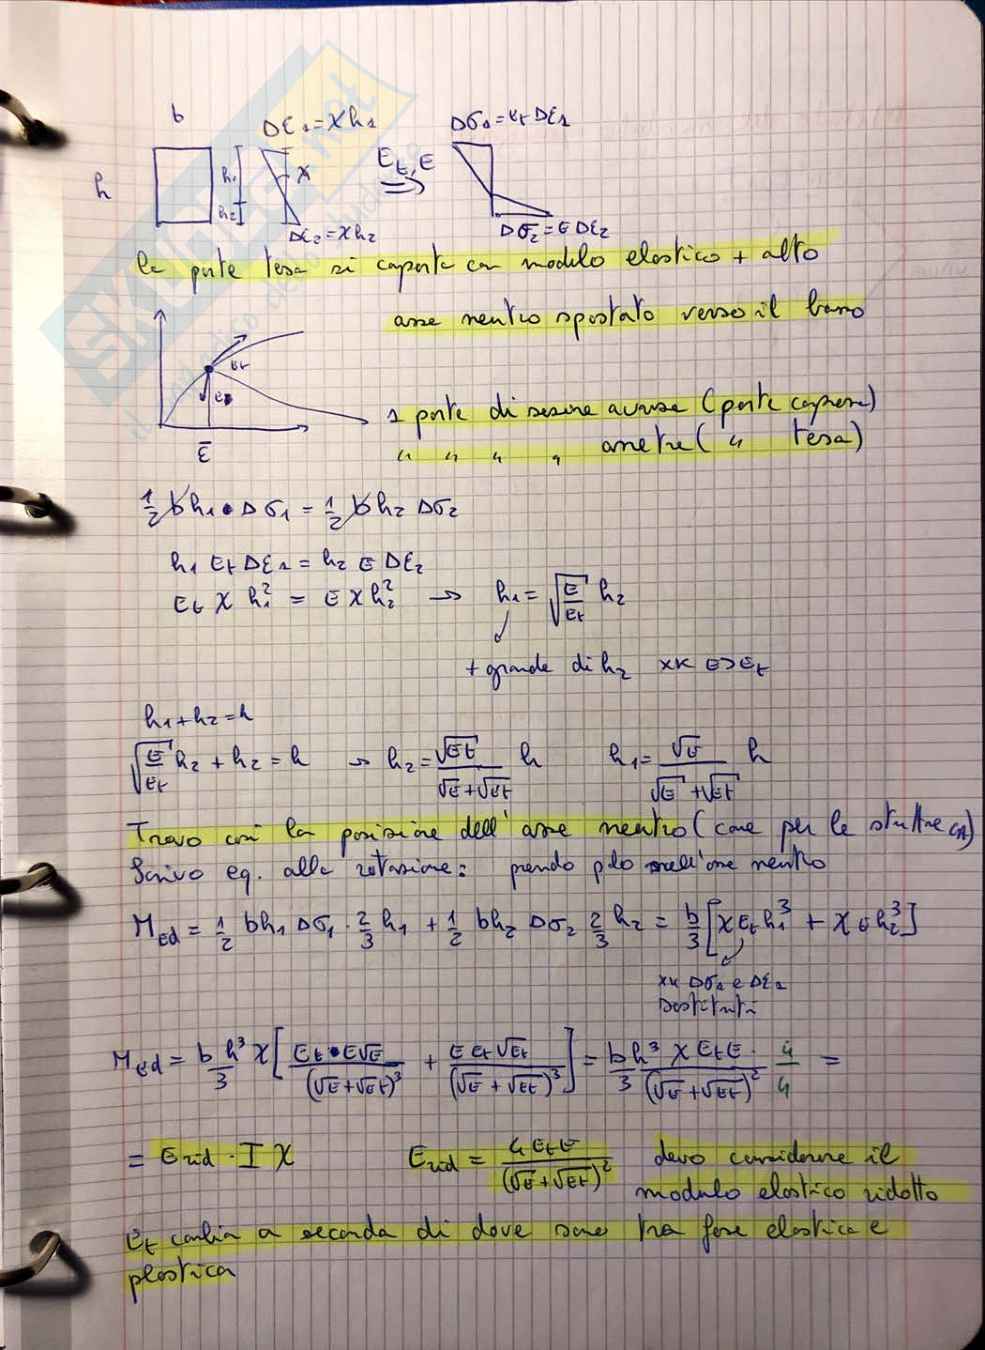 b
Δε₁ = χh₁
Δσ₁ = Et Δε₁
h
h₁
χ
Et, E
⇒
h₂
Δε₂ = χh₂
Δσ₂ = E Δε₂
la parte tesa si comporta con modulo elastico + alto
asse neutro spostato verso il basso
Et
E
ε̄
1 parte di sezione avanza (parte compressa)
" " " " arretra ( " tesa)
1/2 b h₁ • Δσ₁ = 1/2 b h₂ Δσ₂
h₁ Et Δε₁ = h₂ E Δε₂
Et χ h₁² = E χ h₂² → h₁ = √(E/Et) h₂
+ grande di h₂ xk E>Et
h₁ + h₂ = h
√(E/Et) h₂ + h₂ = h → h₂ = √Et/(√E + √Et) h h₁ = √E/(√E + √Et) h
Trovo così la posizione dell'asse neutro (come per le strutture CA)
Scrivo eq. alla rotazione: prendo polo nell'asse neutro
MEd = 1/2 bh₁ Δσ₁ · 2/3 h₁ + 1/2 bh₂ Δσ₂ 2/3 h₂ = b/3 [χ Et h₁³ + χ E h₂³]
xk Δσ₁ e Δε₁
sostituiti
MEd = b h³/3 χ [Et • E√E/(√E + √Et)³ + E Et √Et/(√E + √Et)³] = b h³/3 χ Et E/(√E + √Et)² · 4/4 =
= Erid · I χ Erid = 4 Et E/(√E + √Et)² devo considerare il
modulo elastico ridotto
Et cambia a seconda di dove sono tra fase elastica e
plastica
SKUOLA.net